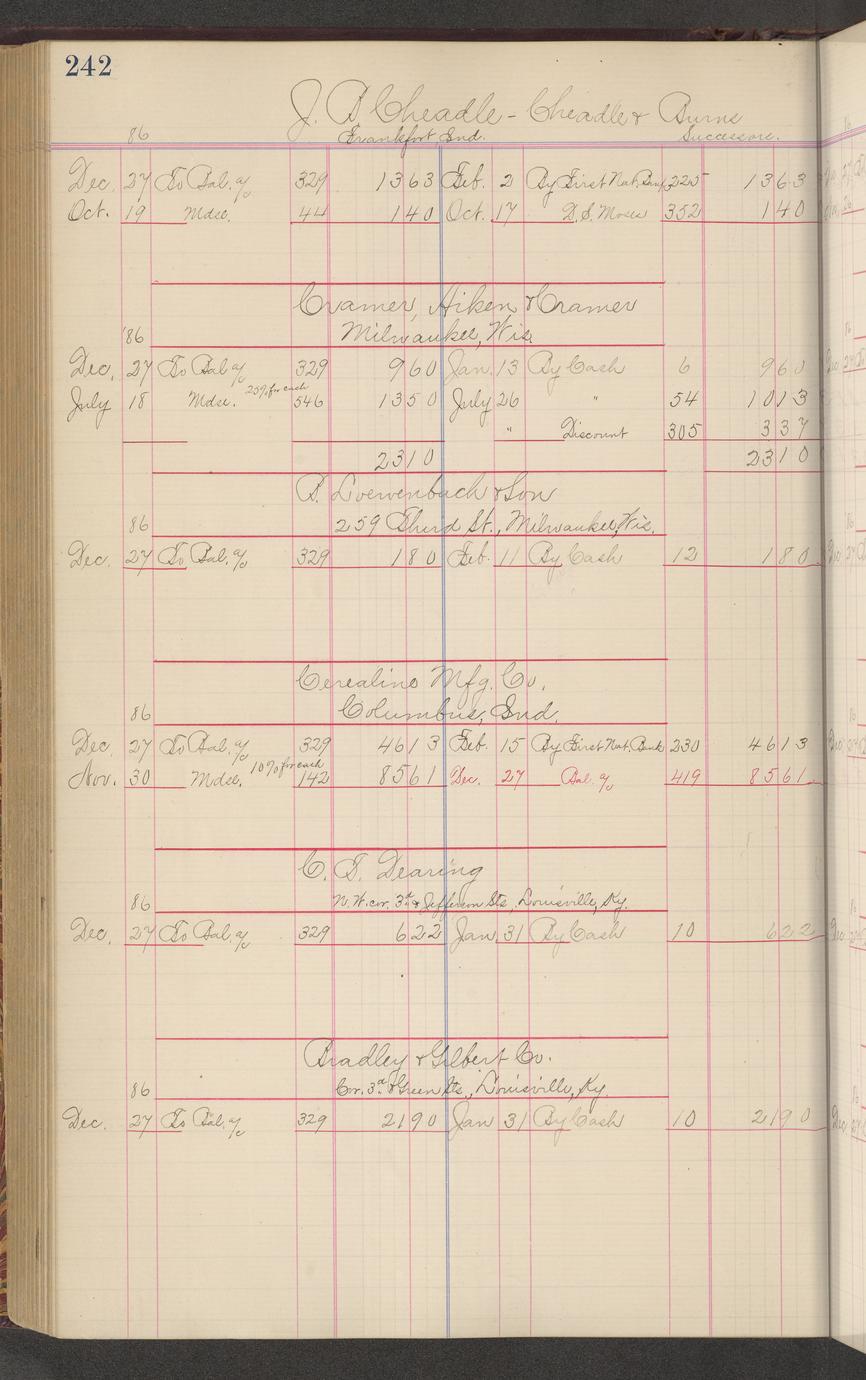 242
J. B. Cheadle - Cheadle & Burns
86 Frankfort, Ind. Successors.
Dec. 27 To Bal. a/c 329 1363 Feb. 2 By First Nat. Bank 225 1363
Oct. 19 Mdse. 44 140 Oct. 17 D. S. Moses 352 140
Cramer, Aiken, & Cramer
'86 Milwaukee, Wis.
Dec. 27 To Bal a/c 329 960 Jan. 13 By Cash 6 960
July 18 Mdse. 25% for cash 546 1350 July 26 " 54 1013
" Discount 305 337
2310 2310
B. Loewenbach & Son
86 259 Third St., Milwaukee, Wis.
Dec. 27 To Bal. a/c 329 180 Feb. 11 By Cash 12 180
Cerealine Mfg. Co.
86 Columbus, Ind.
Dec. 27 To Bal. a/c 329 4613 Feb. 15 By First Nat. Bank 230 4613
Nov. 30 Mdse. 10% for cash 142 8561 Dec. 27 Bal. a/c 419 8561
C. T. Dearing
86 N. W. cor. 3rd & Jefferson Sts., Louisville, Ky.
Dec. 27 To Bal. a/c 329 622 Jan. 31 By Cash 10 622
Bradley & Gilbert Co.
86 Cor. 3rd & Green Sts., Louisville, Ky.
Dec. 27 To Bal. a/c 329 2190 Jan 31 By Cash 10 2190